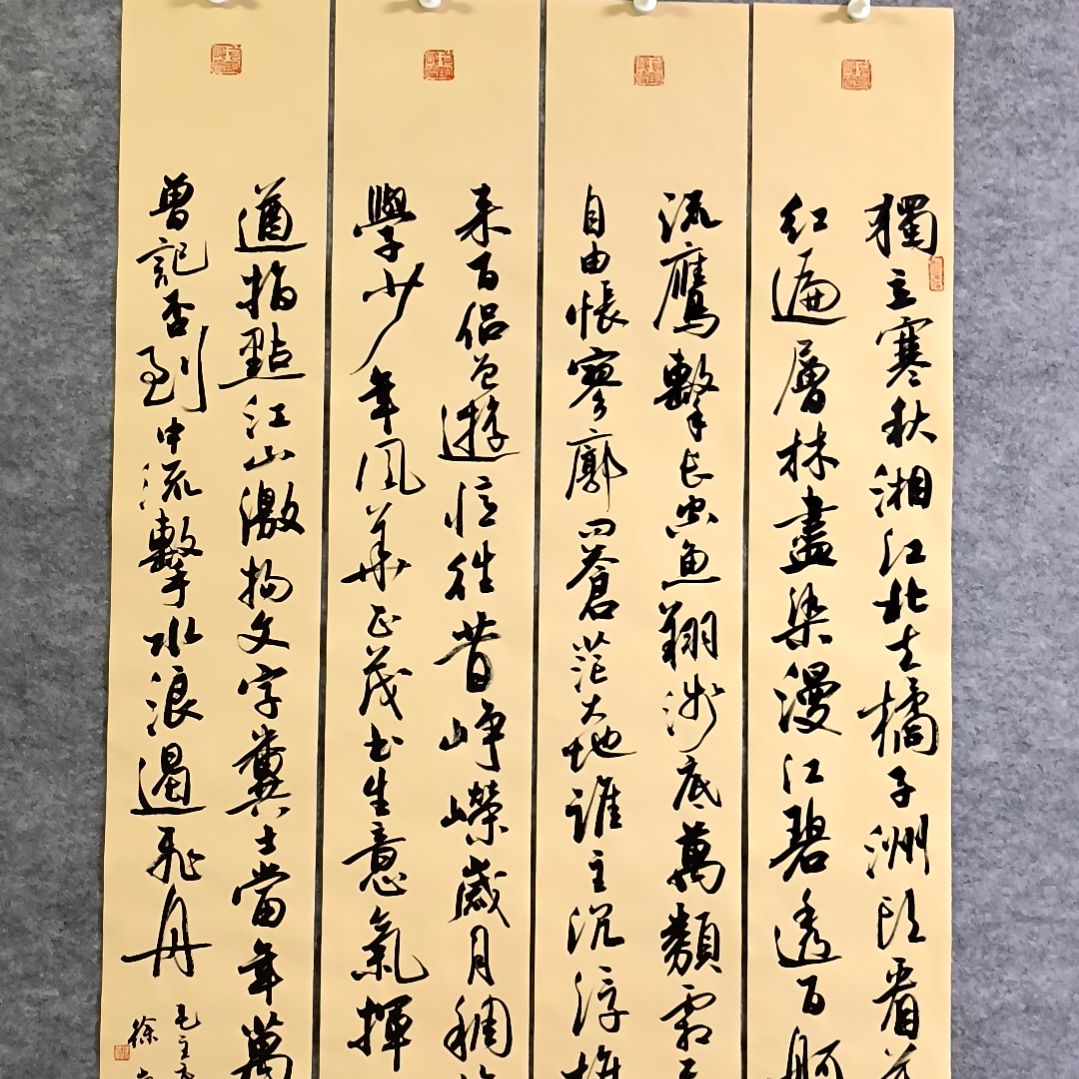 獨立寒秋湘江北去橘子洲頭看
紅遍層林盡染漫江碧透百舸
流鷹擊長空魚翔淺底萬類霜
自由悵寥廓問蒼茫大地誰主沉浮攜
来百侣曾遊憶往昔崢嶸歲月稠
學少年風華正茂書生意氣揮
遒指點江山激揚文字糞土當年萬
曾記否到中流擊水浪遏飛舟
毛主席
徐